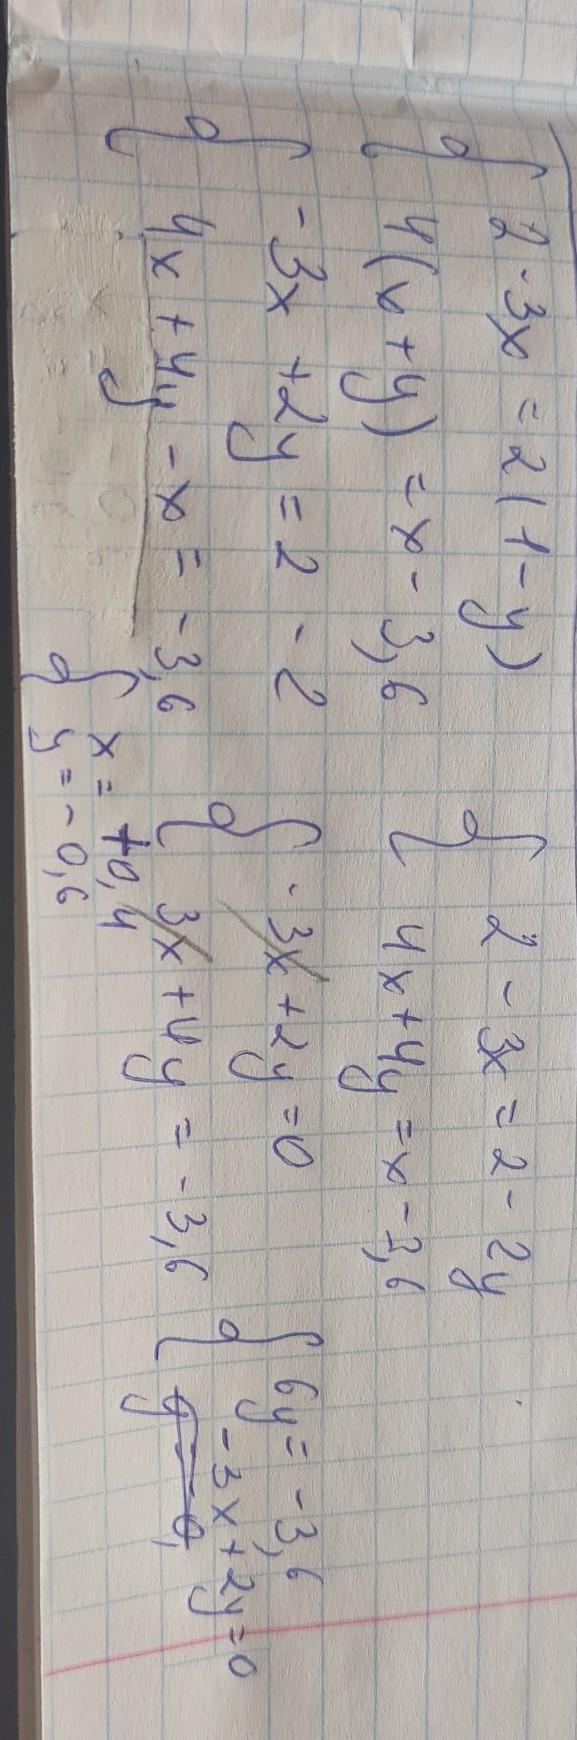 { 2-3x = 2(1-y)
4(x+y) = x-3,6
{ 2-3x = 2-2y
4x+4y = x-3,6
{ -3x+2y = 2-2
4x+4y-x = -3,6
{ -3x+2y = 0
3x+4y = -3,6
{ 6y = -3,6
-3x+2y = 0
{ x = +0,4
y = -0,6